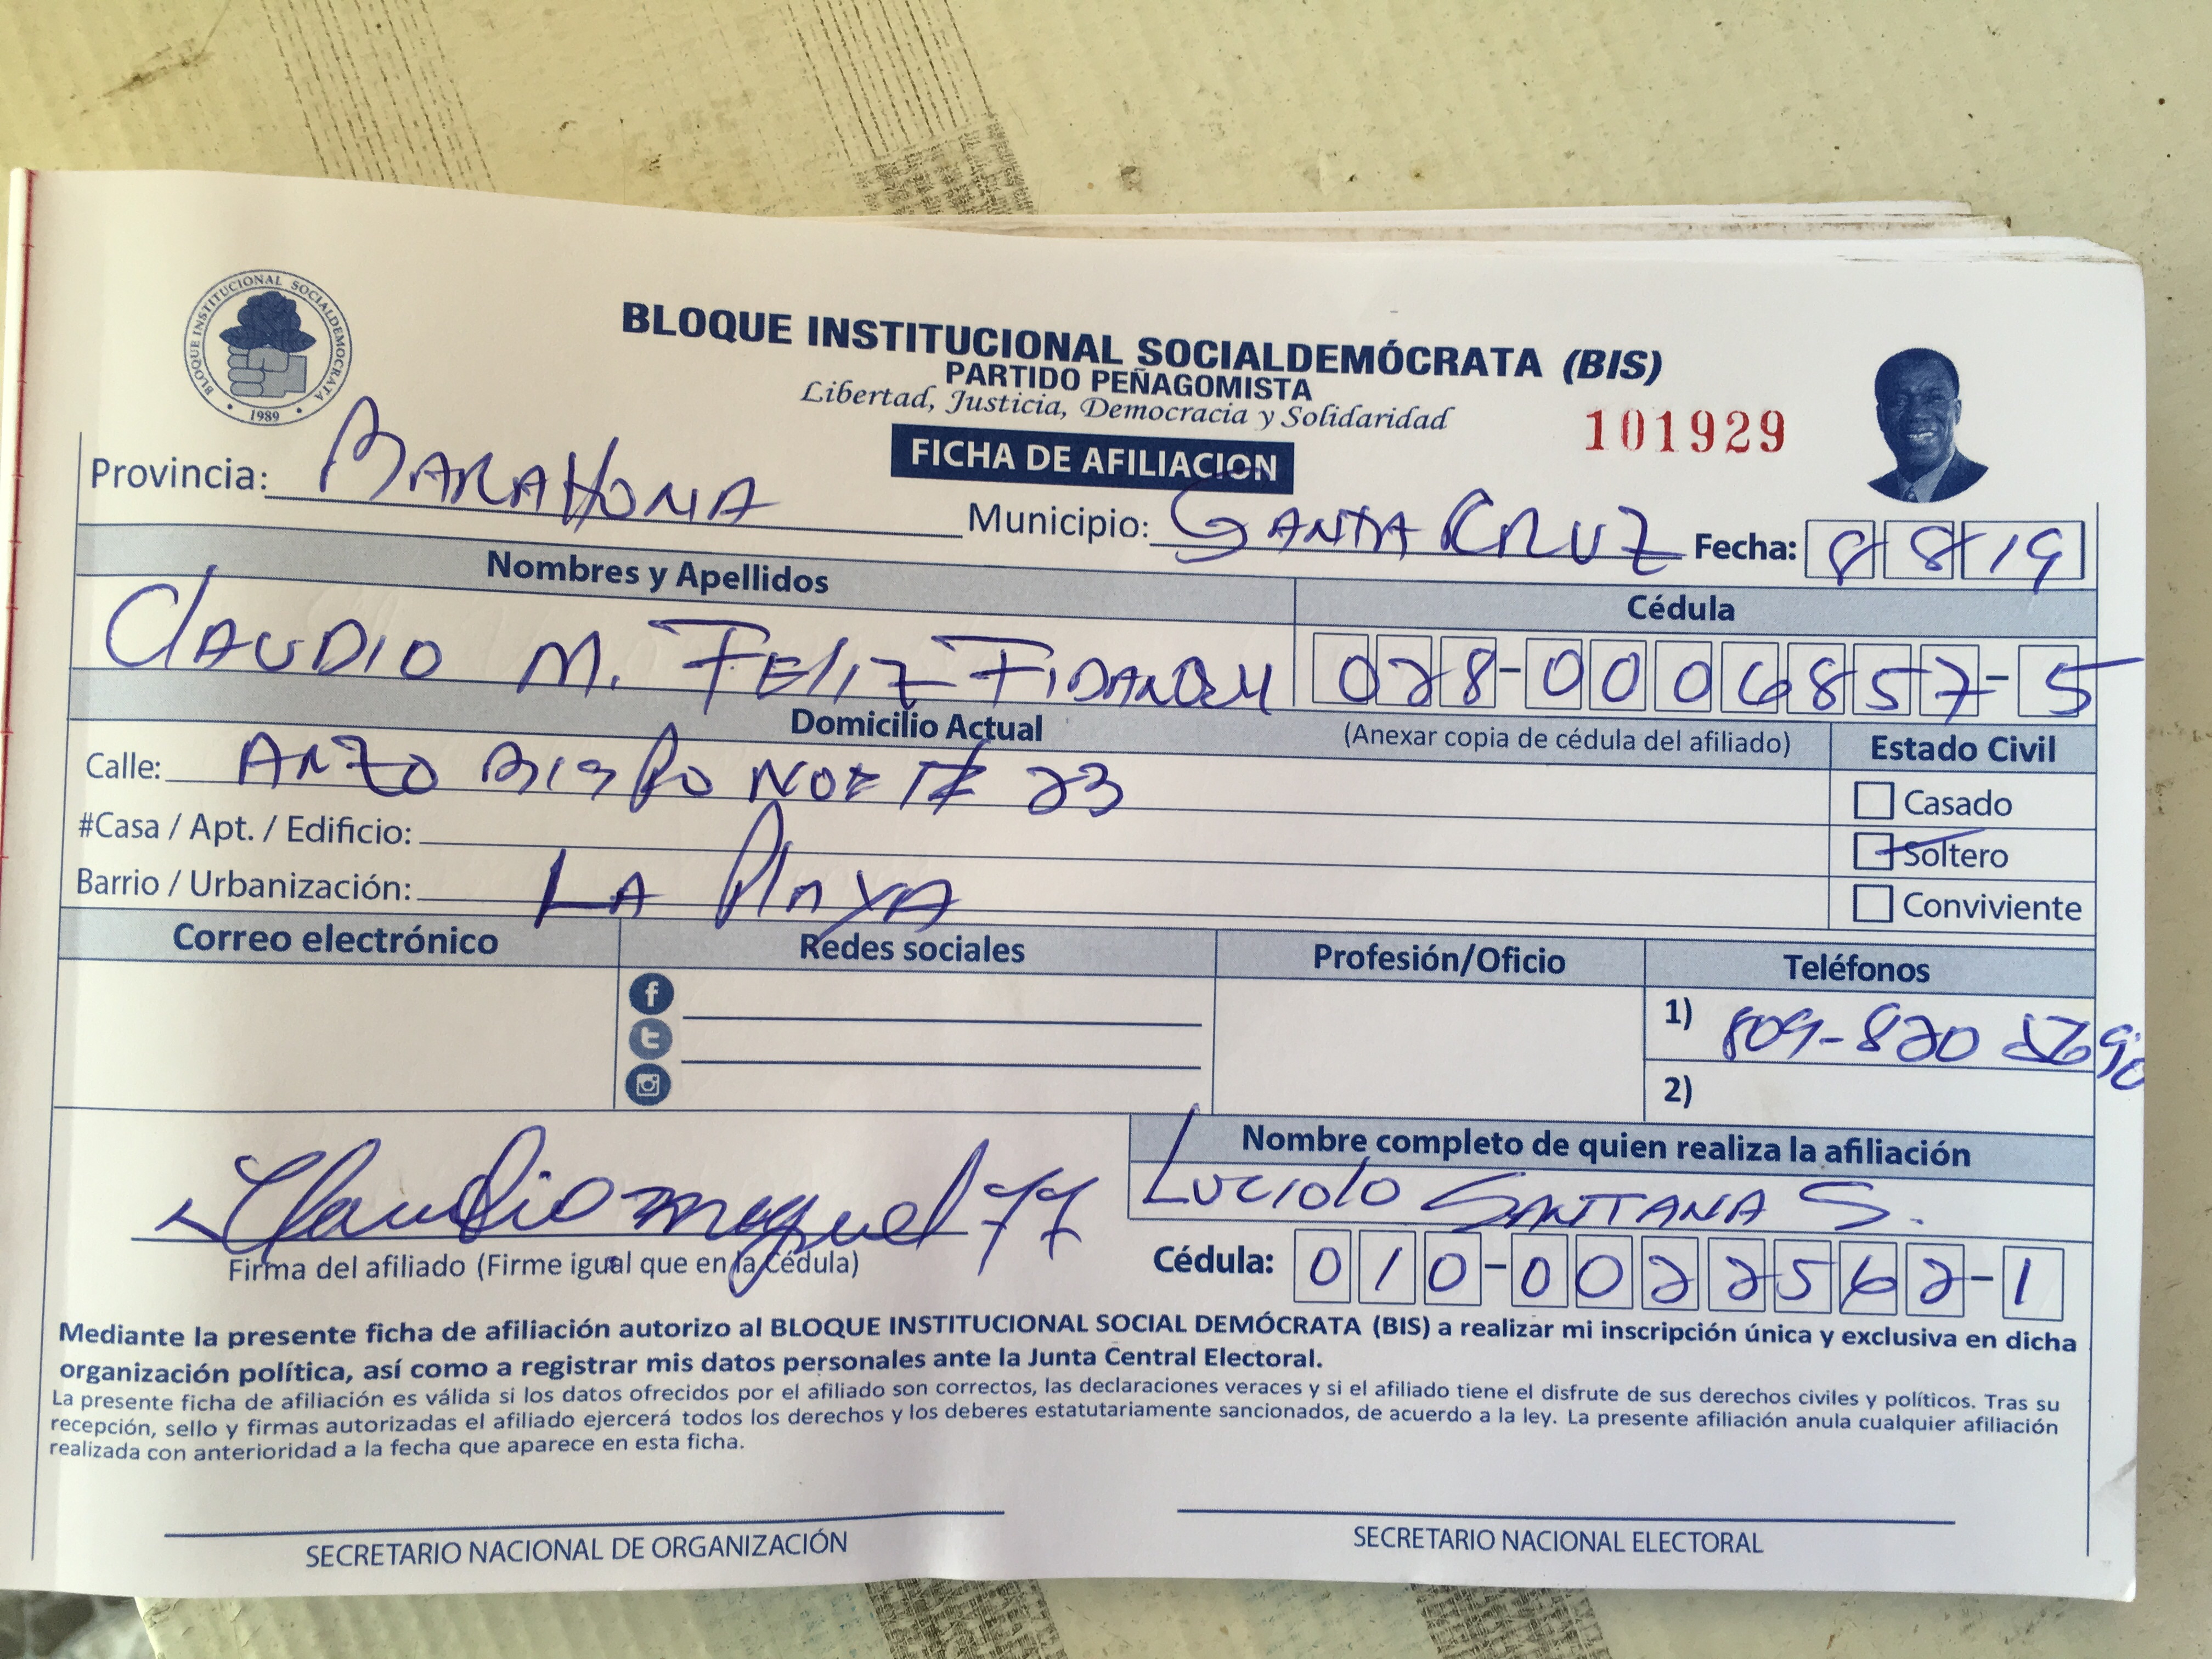 BLOQUE INSTITUCIONAL SOCIALDEMOCRATA
1989
BLOQUE INSTITUCIONAL SOCIALDEMÓCRATA (BIS)
PARTIDO PEÑAGOMISTA
Libertad, Justicia, Democracia y Solidaridad
101929
FICHA DE AFILIACION
Provincia: BARAHONA Municipio: SANTA CRUZ Fecha: 8 8 19
Nombres y Apellidos
Cédula
CLAUDIO M. FELIZ 028-0006857-5
Domicilio Actual
(Anexar copia de cédula del afiliado)
Estado Civil
Calle: ARZOBISPO 23
Casado
#Casa / Apt. / Edificio:
Soltero
Barrio / Urbanización: LA PLAYA
Conviviente
Correo electrónico
Redes sociales
Profesión/Oficio
Teléfonos
1) 809-820
2)
Nombre completo de quien realiza la afiliación
Claudio Miguel
LUCIOLO SANTANA S.
Firma del afiliado (Firme igual que en la Cédula)
Cédula: 010-0022562-1
Mediante la presente ficha de afiliación autorizo al BLOQUE INSTITUCIONAL SOCIAL DEMÓCRATA (BIS) a realizar mi inscripción única y exclusiva en dicha
organización política, así como a registrar mis datos personales ante la Junta Central Electoral.
La presente ficha de afiliación es válida si los datos ofrecidos por el afiliado son correctos, las declaraciones veraces y si el afiliado tiene el disfrute de sus derechos civiles y políticos. Tras su
recepción, sello y firmas autorizadas el afiliado ejercerá todos los derechos y los deberes estatutariamente sancionados, de acuerdo a la ley. La presente afiliación anula cualquier afiliación
realizada con anterioridad a la fecha que aparece en esta ficha.
SECRETARIO NACIONAL DE ORGANIZACIÓN
SECRETARIO NACIONAL ELECTORAL